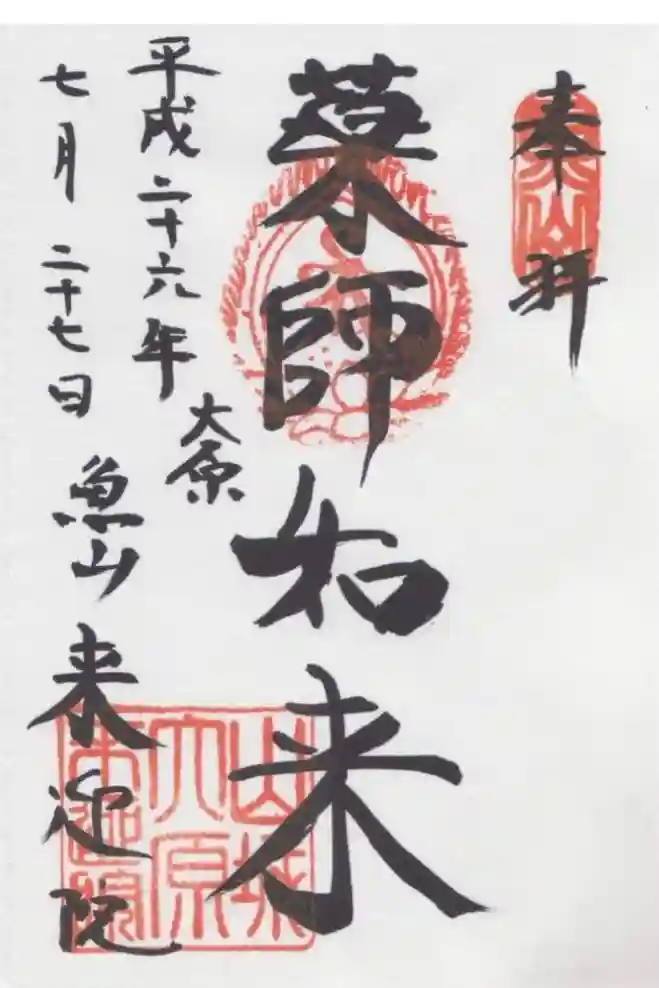 奉拝
魚山
薬師如来
大原
平成二十六年
七月二十七日
魚山
来迎院
山城
大原
来迎院